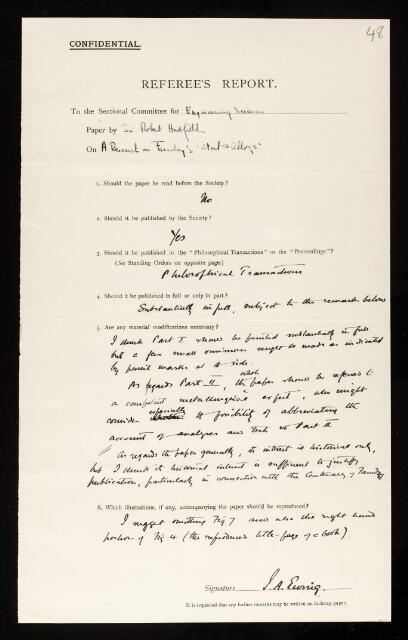 48
CONFIDENTIAL.
REFEREE'S REPORT.
To the Sectional Committee for Engineering Sciences
Paper by Sir Robert Hadfield
On A Research on Faraday's "Steel & Alloys"
1. Should the paper be read before the Society?
No
2. Should it be published by the Society?
Yes
3. Should it be published in the "Philosophical Transactions" or the "Proceedings"?
(See Standing Orders on opposite page.)
Philosophical Transactions
4. Should it be published in full or only in part?
Substantially in full, subject to the remarks below
5. Are any material modifications necessary?
I think Part I should be printed substantially in full
but a few small omissions might be made as indicated
by pencil marks at the side.
As regards Part II, the paper should be referred to
a competent metallurgical expert, who might
consider especially the possibility of abbreviating the
account of analyses and tests in Part II
As regards the paper generally, its interest is historical only,
but I think its historical interest is sufficient to justify
publication, particularly in connection with the Centenary of Faraday
6. Which illustrations, if any, accompanying the paper should be reproduced?
I suggest omitting Fig 7 and also the right hand
portion of Fig 4 (the reproduced title-page of a book)
Signature J. A. Ewing.
It is requested that any further remarks may be written on foolscap paper.